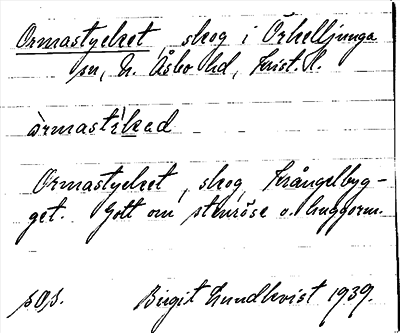 Ormastycket, skog i Örkelljunga
sn, N. Åsbo hd, Krist. l.
òrmastìkad
Ormastycket, skog, Krångelbyg-
get. Gott om stenröse o. huggorm.
sOs. Birgit Lundkvist 1939.